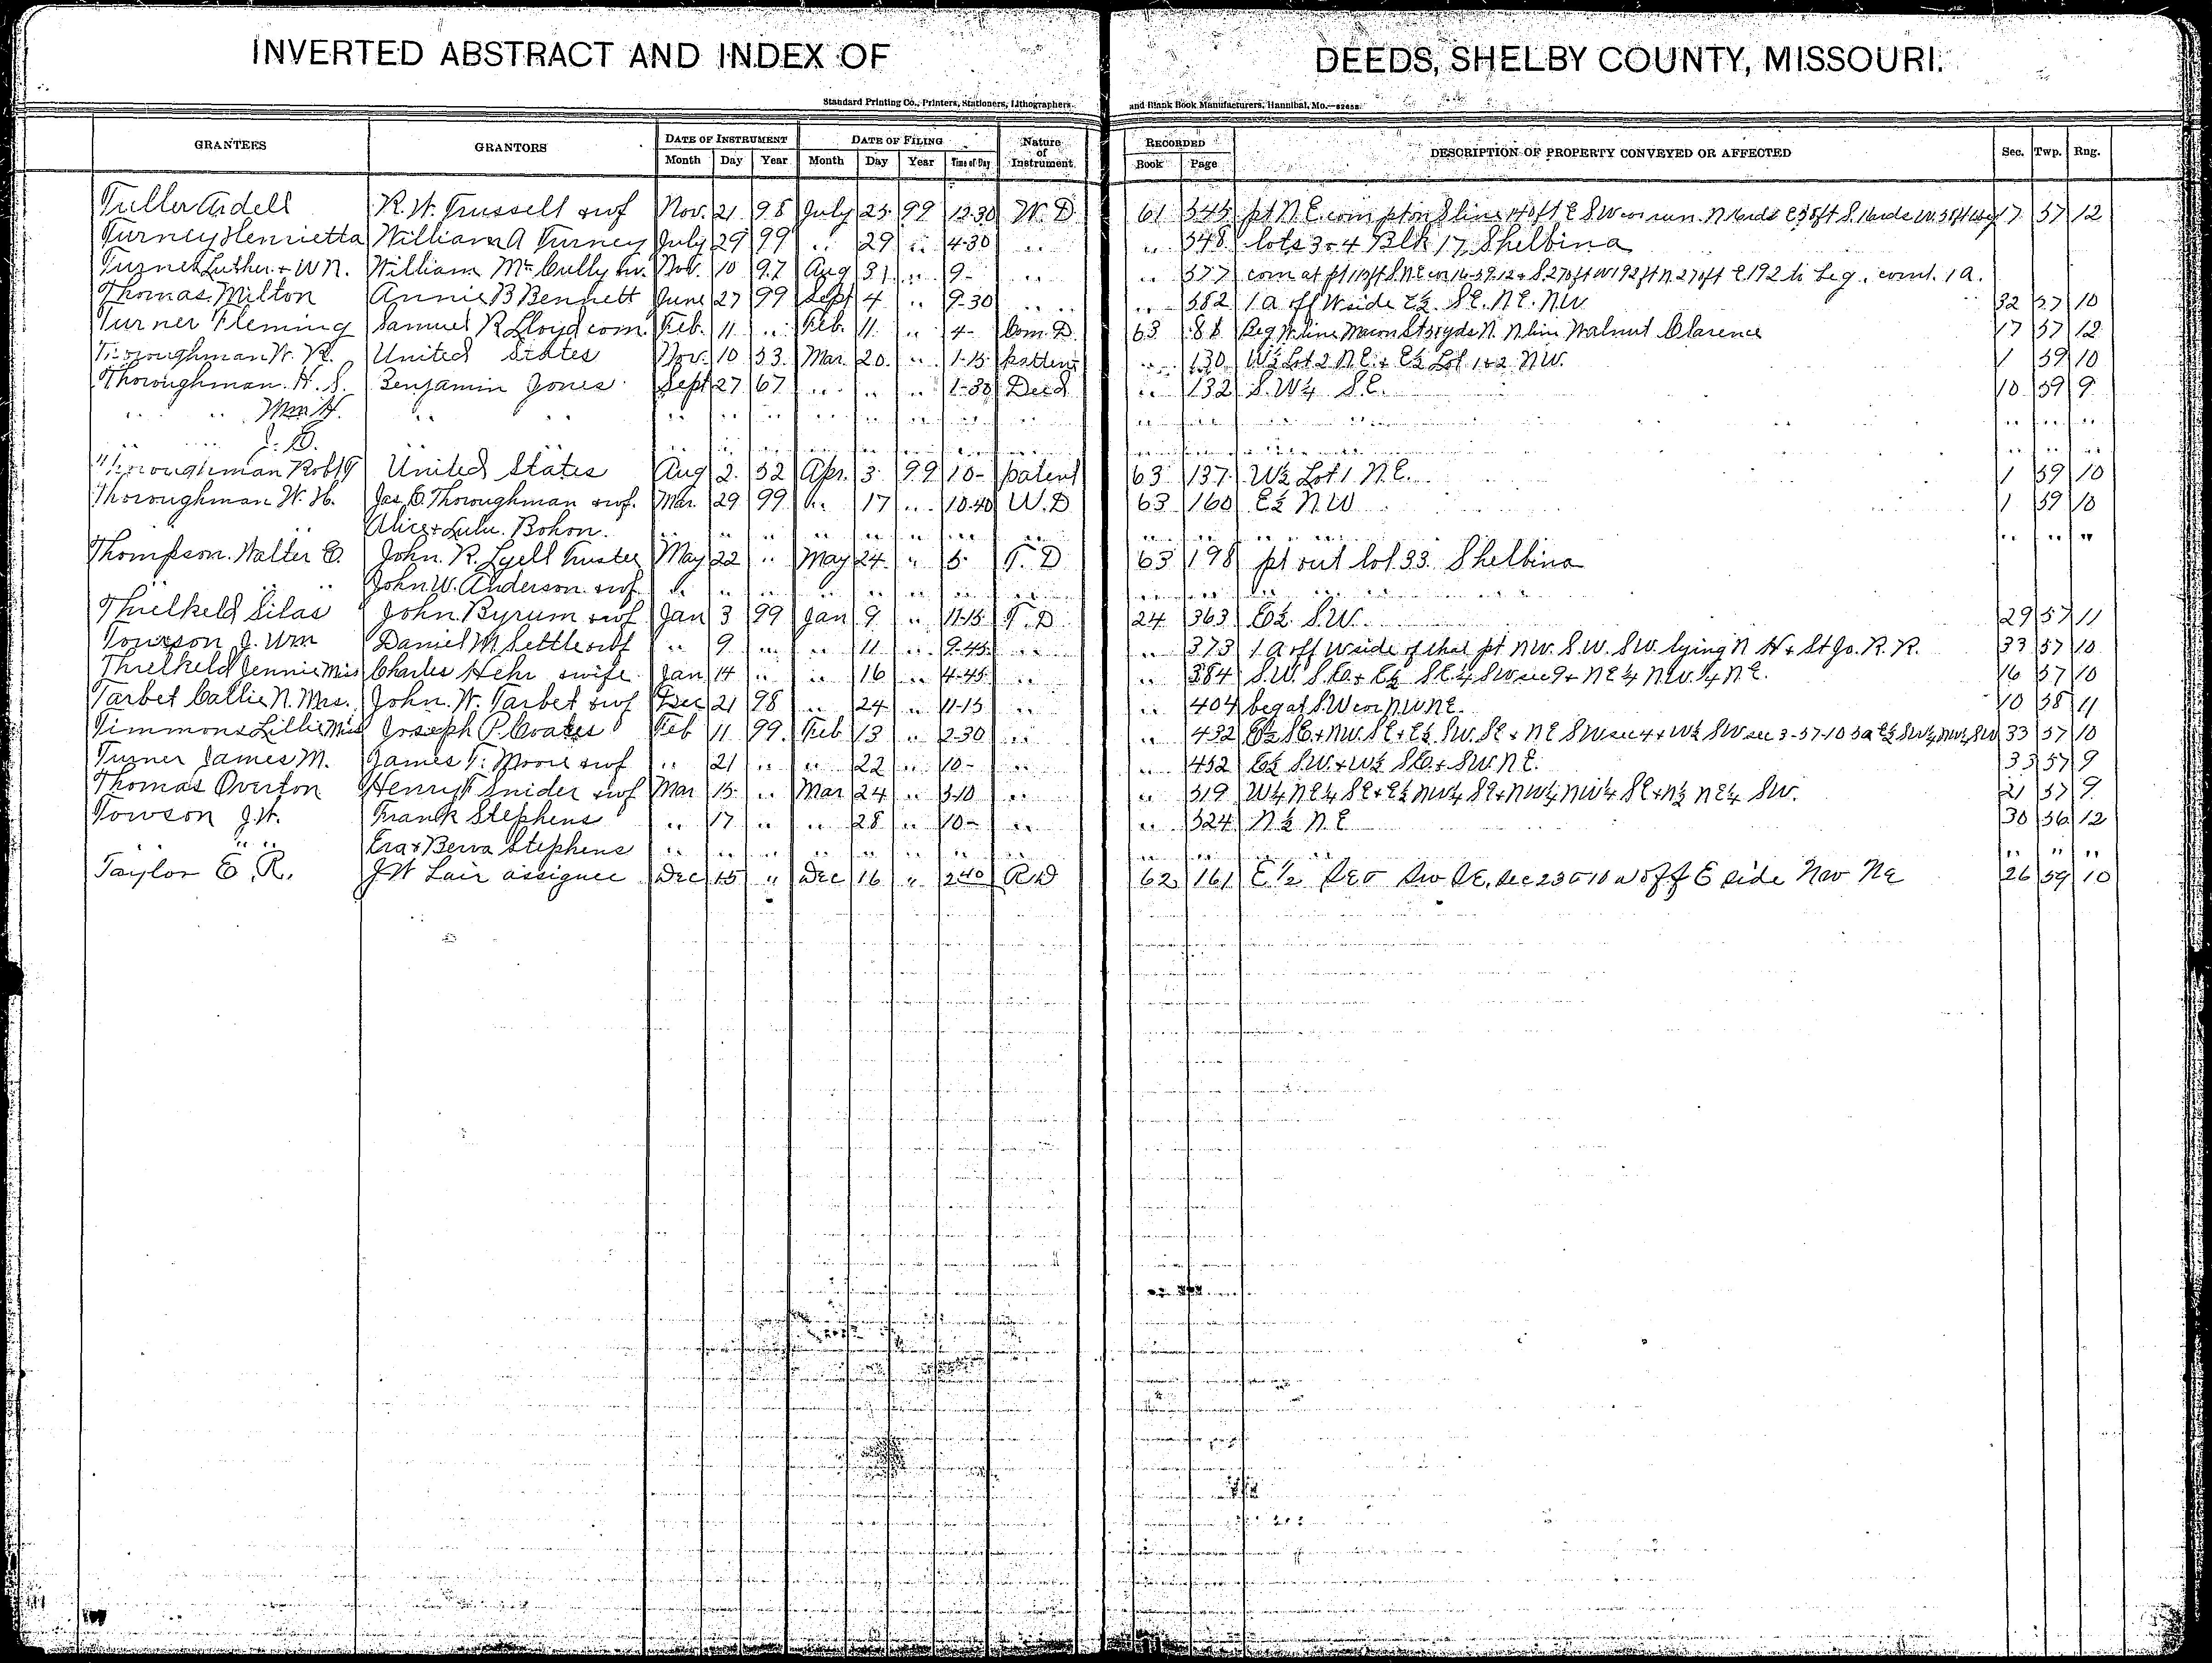 INVERTED ABSTRACT AND INDEX OF DEEDS, SHELBY COUNTY, MISSOURI.
Standard Printing Co., Printers, Stationers, Lithographers and Blank Book Manufacturers, Hannibal, Mo.
GRANTEES GRANTORS DATE OF INSTRUMENT DATE OF FILING Nature of Instrument RECORDED DESCRIPTION OF PROPERTY CONVEYED OR AFFECTED Sec. Twp. Rng.
Month Day Year Month Day Year Time of Day Book Page
Tuller Ardell R. W. Trussell & wf Nov. 21 98 July 25 99 12-30 W. D 61 345 pt N E. com pt on S line 140 ft E S W cor run N E 50 ft S. 17 57 12
Turney Henrietta William A Turney July 29 99 .. 29 .. 4-30 .. .. 348 lots 3 & 4 Blk 17, Shelbina
Turner Luther & W N. William Mc Cully Nov. 10 97 Aug 31 .. 9- .. .. 377 com at pt S. N E cor 16-59-12 & S 270 ft W 192 ft N 270 ft E 192 to beg. cont. 1 a.
Thomas Milton Annie B Bennett June 27 99 Sept 4 .. 9-30 .. .. 382 1 a off W side E½ S E. N E. N W 32 57 10
Turner Fleming Samuel R Lloyd com. Feb. 11 .. Feb. 11 .. 4- Com. D. 63 88 Beg W line Macon St N. N line Walnut Clarence 17 57 12
Thoroughman W. R. United States Nov. 10 53 Mar. 20 .. 1-15 .. 130 W½ Lot 2 N E. & E½ Lot 1 & 2 N W. 1 59 10
Thoroughman H. S. Benjamin Jones Sept 27 67 .. .. .. 1-30 Deed .. 132 S. W¼ S. E. 10 59 9
.. .. Wm H. .. .. .. .. .. .. .. .. .. .. .. .. .. .. .. ..
.. .. J. D. .. .. .. .. .. .. .. .. .. .. .. .. .. ..
Thoroughman Robt United States Aug 2 52 Apr. 3 99 10- patent 63 137 W½ Lot 1 N. E. 1 59 10
Thoroughman W. H. Jas. E. Thoroughman & wf. Mar. 29 99 .. 17 .. 10-40 W. D 63 160 E½ N W 1 59 10
.. Alice & Lulu Bohon. .. .. .. .. .. .. .. .. .. .. .. .. .. ..
Thompson Walter E. John R. Lyell Trustee May 22 .. May 24 .. 5- T. D 63 198 pt out lot 33. Shelbina
.. .. John W. Anderson & wf .. .. .. .. .. .. .. .. .. .. ..
Threlkeld Silas John Byrum & wf Jan 3 99 Jan 9 .. 11-15 T. D 24 363 E½ S. W. 29 57 11
Towson J. Wm Daniel M. Settle & wf .. 9 .. .. 11 .. 9-45 .. .. 373 1 a off W side of that pt N W. S. W. S W. lying N H & St Jo. R. R. 33 57 10
Threlkeld Jennie Miss Charles Hehr & wife Jan 14 .. .. 16 .. 4-45 .. .. 384 S. W. S. E. & E½ S E¼ S W sec 9 & N E¼ N W. ¼ N E. 16 57 10
Tarbet Callie N. Mrs. John W. Tarbet & wf Dec 21 98 .. 24 .. 11-15 .. .. 404 beg at S W cor N W N E. 10 58 11
Timmons Lillie Miss Joseph P. Coates Feb 11 99 Feb 13 .. 2-30 .. .. 432 E½ S E. & N W. S E & E½ S W. S E & N E S W sec 4 & W½ S W sec 3-57-10 33 57 10
Turner James M. James T. Moore & wf .. 21 .. .. 22 .. 10- .. .. 452 E½ S W. & W½ S E. & S W. N E. 33 57 9
Thomas Overton Henry F Snider & wf Mar 15 .. Mar 24 .. 3-10 .. .. 519 W¼ N E¼ S E & E½ N W¼ S E & N W¼ N W¼ S E & N½ N E¼ S W. 21 57 9
Towson J. W. Frank Stephens .. 17 .. .. 28 .. 10- .. .. 524 N½ N. E 30 56 12
.. .. Era & Berva Stephens .. .. .. .. .. .. .. .. .. .. .. .. .. ..
Taylor E. R. J W Lair assignee Dec 15 " Dec 16 " 2 40 R D 62 161 E ½ S E & S W S E, Sec 23 & 10 a off E side N W N E 26 59 10